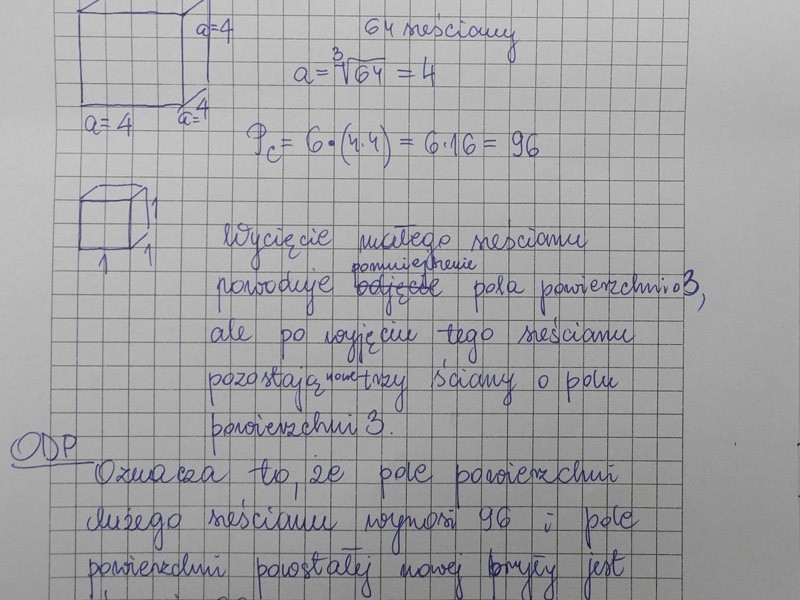 a=4
64 sześciany
a = ∛64 = 4
a=4
a=4
Pc = 6·(4·4) = 6·16 = 96
1
1
1
Wycięcie małego sześcianu
pomniejszenie
powoduje odjęcie pola powierzchni o 3,
ale po wyjęciu tego sześcianu
pozostają nowe trzy ściany o polu
powierzchni 3.
ODP
Oznacza to, że pole powierzchni
dużego sześcianu wynosi 96 i pole
powierzchni powstałej nowej bryły jest